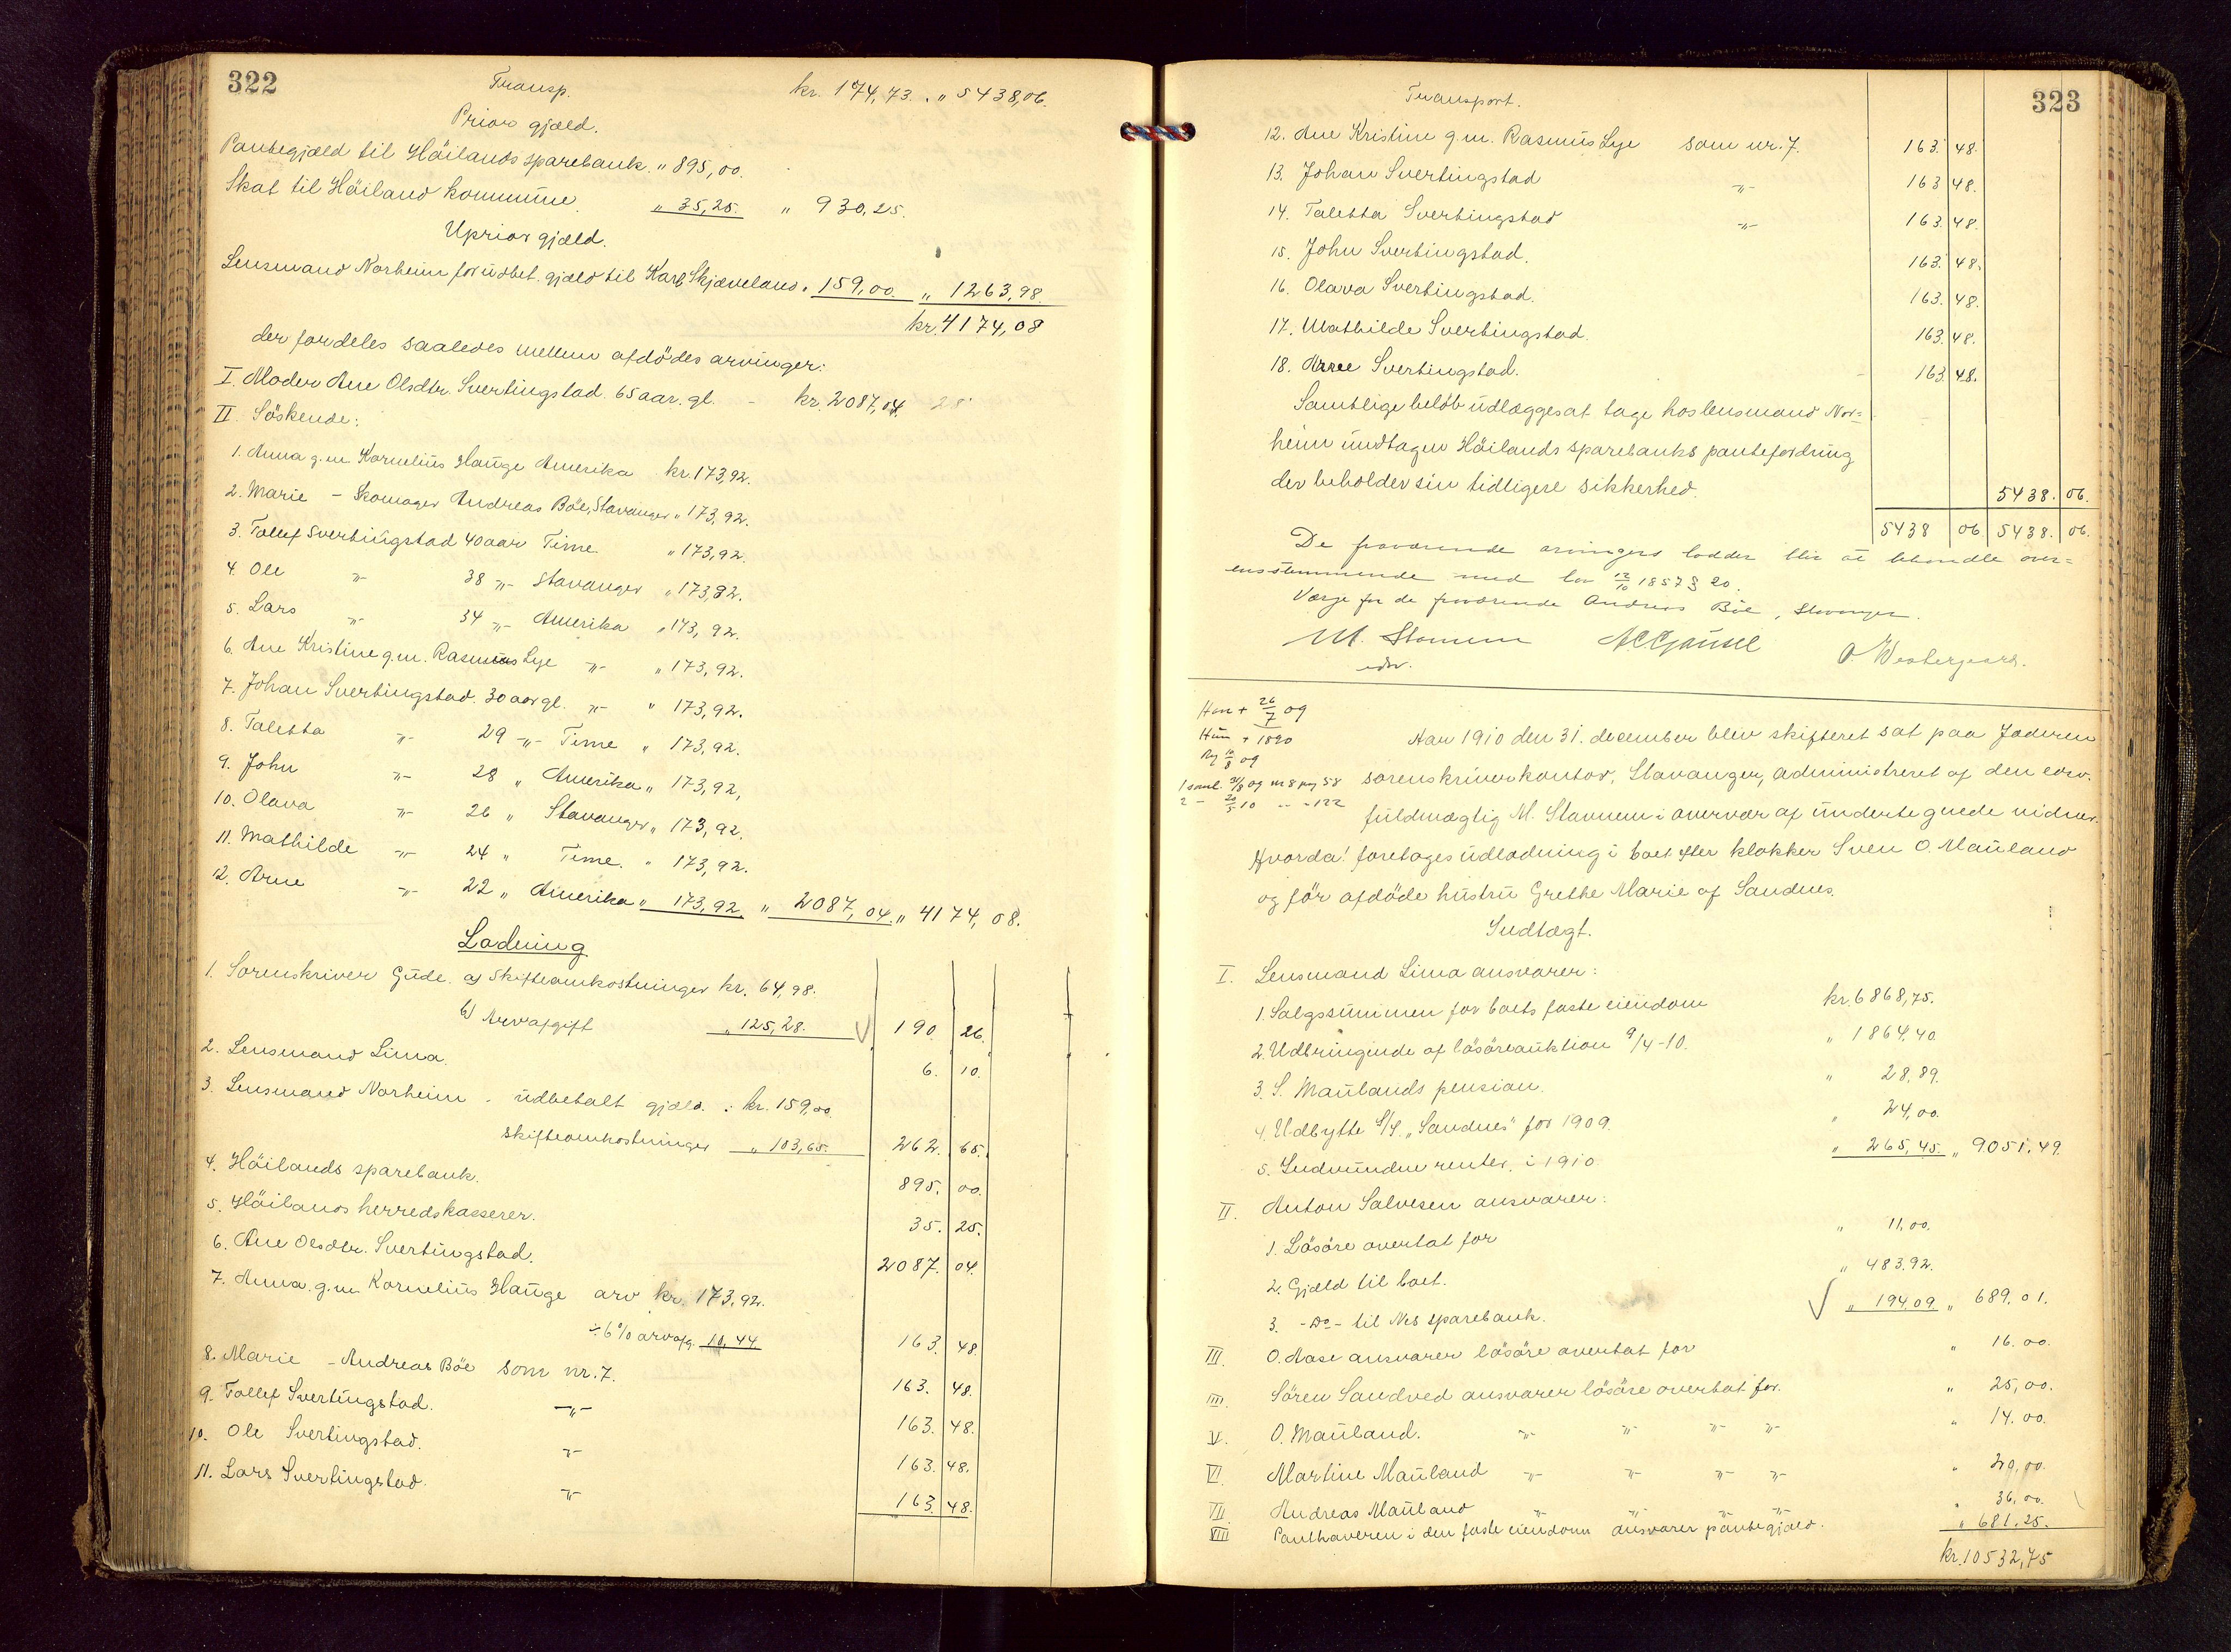 322 Transp. kr. 174,73. „ 5438,06.
Prior gjæld.
Pantegjæld til Höilands sparebank. „ 895,00.
Skat til Höiland kommune. „ 35,25. „ 930,25.
Uprior gjæld.
Lensmand Norheim for udbet. gjæld til Karl Skjæveland „ 159,00. „ 1263,98.
kr. 4174,08
der fordeles saaledes mellem afdödes arvinger:
I. Moder Ane Olsdtr. Svertingstad. 65 aar. gl. - kr. 2087,04.
II. Söskende:
1. Anna g.m. Kornelius Hauge Amerika kr. 173,92.
2. Marie - Skomager Andreas Böe, Stavanger „ 173,92.
3. Tollef Svertingstad 40 aar Time „ 173,92.
4. Ole -„- 38 -„- Stavanger „ 173,92.
5. Lars -„- 34 -„- Amerika „ 173,92.
6. Ane Kristine g.m. Rasmus Lye -„- „ 173,92.
7. Johan Svertingstad. 30 aar gl. -„- „ 173,92.
8. Taletta -„- 29 -„- Time „ 173,92.
9. John -„- 28 „ Amerika „ 173,92,
10. Olava -„- 26 „ Stavanger „ 173,92.
11. Mathilde -„- 24 „ Time. „ 173,92.
12. Arne -„- 22 „ Amerika „ 173,92. „ 2087,04. „ 4174,08.
Lodning
1. Sorenskriver Gude. a) Skifteomkostninger kr. 64,98.
b) Arvafgift „ 125,28. 190 26.
2. Lensmand Lima. 6. 10.
3. Lensmand Norheim - udbetalt gjæld. : kr. 159,00.
skifteomkostninger „ 103,65. 262. 65.
4. Höilands sparebank. 895. 00.
5. Höilands herredskasserer. 35. 25.
6. Ane Olsdtr. Svertingstad. 2087. 04.
7. Anna. g.m. Kornelius Hauge arv kr. 173,92.
÷ 6% arvafg. 10,44 163. 48.
8. Marie - Andreas Böe som nr. 7. 163. 48.
9. Tollef Svertingstad. -„- 163. 48.
10. Ole Svertingstad. -„- 163. 48.
11. Lars Svertingstad. -„- 163. 48.
Transport. 323
12. Ane Kristine g.m. Rasmus Lye som nr. 7. 163. 48.
13. Johan Svertingstad -„- 163 48.
14. Taletta Svertingstad -„- 163. 48.
15. John Svertingstad. 163. 48.
16. Olava Svertingstad. 163. 48.
17. Mathilde Svertingstad. 163. 48.
18. Arne Svertingstad. 163. 48.
Samtlige belöb udlægges at tage hos lensmand Nor=
heim undtagen Höilands sparebanks pantefordring
der beholder sin tidligere sikkerhed. 5438. 06.
5438 06 5438. 06.
De fraværende arvingers lodder blir at behandle over=
ensstemmende med lov 12/10 1857 § 20.
Værge for de fraværende Andreas Böe, Stavanger.
M. Stavnem A C Gausel O. Westergaard.
edsv.
Han + 26/7 09
Hun + 1890
Reg 10/8 09
1 saml. 31/8 09 nr 8 pag 58
2 - 20/5 10 - - 122
Aar 1910 den 31. december blev skifteret sat paa Jæderen
sorenskriverkontor, Stavanger, administreret af den edsv.
fuldmægtig M. Stavnem i overvær af undertegnede vidner.
Hvorda! foretoges udlodning i boet efter klokker Sven O. Mauland
og för afdöde hustru Grethe Marie af Sandnes.
Indtægt.
I. Lensmand Lima ansvarer:
1. Salgssummen for boets faste eiendom kr. 6868,75.
2. Udbringende af lösöreauktion 9/4-10. „ 1864,40.
3. S. Maulands pension. „ 28,89.
4. Udbytte A/S. „Sandnes" for 1909. „ 24,00.
5. Indvundne renter i 1910. „ 265,45. „ 9051,49.
II. Anton Salvesen ansvarer:
1. Lösöre overtat for „ 11,00.
2. Gjæld til boet. „ 483.92.
3. -Do- til Nes sparebank. „ 194.09. „ 689.01.
III. O. Aase ansvarer lösöre overtat for „ 16.00.
IIII. Sören Sandved ansvarer lösöre overtat for. „ 25,00.
V. O. Mauland. -„- -„- -„- -„- „ 14.00.
VI. Martine Mauland -„- -„- -„- -„- „ 20,00.
VII Andreas Mauland -„- -„- -„- -„- „ 36,00.
VIII Panthaveren i den faste eiendom ansvarer pantegjæld. „ 681.25.
kr. 10532,75